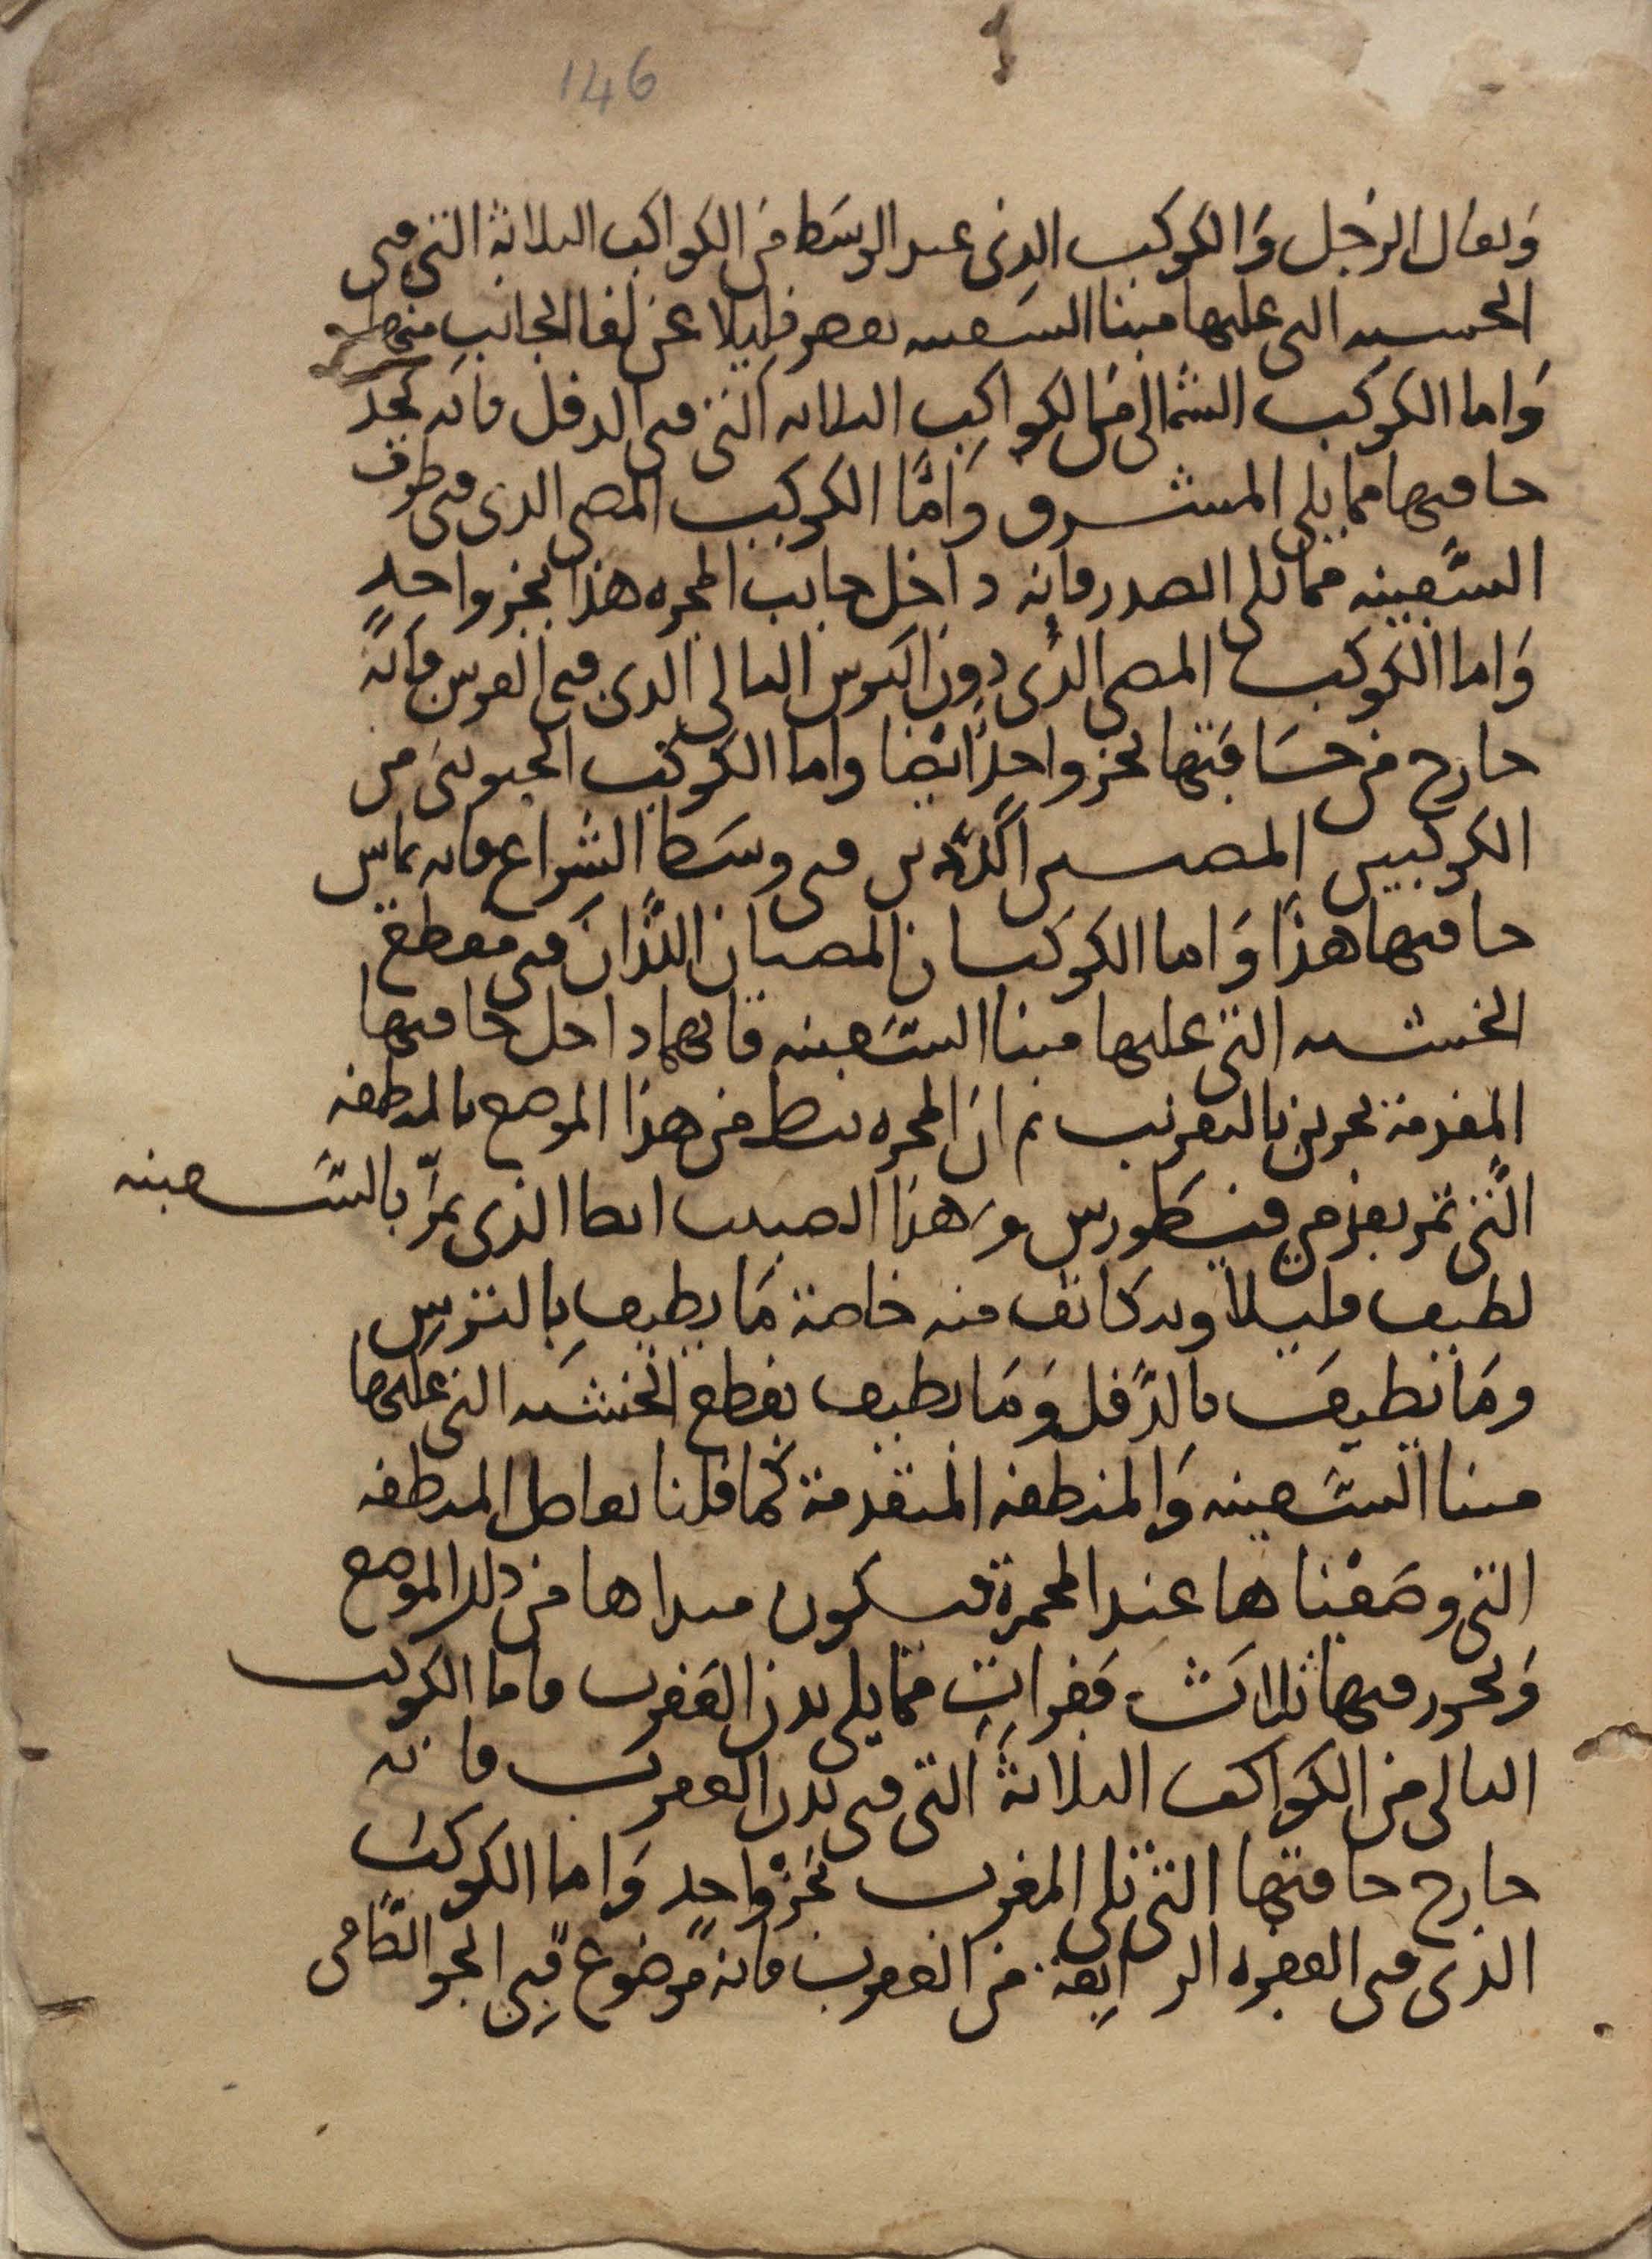 146
ويقال الرجل والكوكب الذي عند الوسط من الكواكب الثلاثة التي في
الخشبة التي عليها مبنا السفينة يقصر قليلا عن لقا الجانب منها
واما الكوكب الشمالي من الكواكب الثلاثة التي في الدقل فانه يحد
حافتها مما يلي المشرق واما الكوكب المضي الذي في طرف
السفينة مما يلي الصدر فانه داخل جانب المجرة هذا بجز واحد
واما الكوكب المضي الذي دون الترس التالي الذي في الترس فانه
خارج من حافتها بجز واحد ايضا واما الكوكب الجنوبي من
الكوكبين المضيين الذين في وسط الشراع فانه يماس
حافتها هذا واما الكوكبان المضيان اللذان في مقطع
الخشبة التي عليها مبنا السفينة فانهما داخل حافتها
المقدمة بجزين بالتقريب ثم ان المجرة تتصل من هذا الموضع بالمنطقة
التي تمر بقدمي قنطورس وهذا الصبيب ايضا الذي يمر بالسفينة
لطيف قليلا ويتكاثف منه خاصة ما يطيف بالترس
وما يطيف بالدقل وما يطيف بقطع الخشبة التي عليها
مبنا السفينة والمنطقة المتقدمة كما قلنا تفاصل المنطقة
التي وصفناها عند المجمرة فيكون مبداها من ذلك الموضع
وتحوز فيها ثلاث فقرات مما يلي بدن العقرب فاما الكوكب
التالي من الكواكب الثلاثة التي في بدن العقرب فانه
خارج حافتها التي تلي المغرب بجز واحد واما الكوكب
الذي في الفقرة الرابعة من العقرب فانه موضوع في الجو الصافي